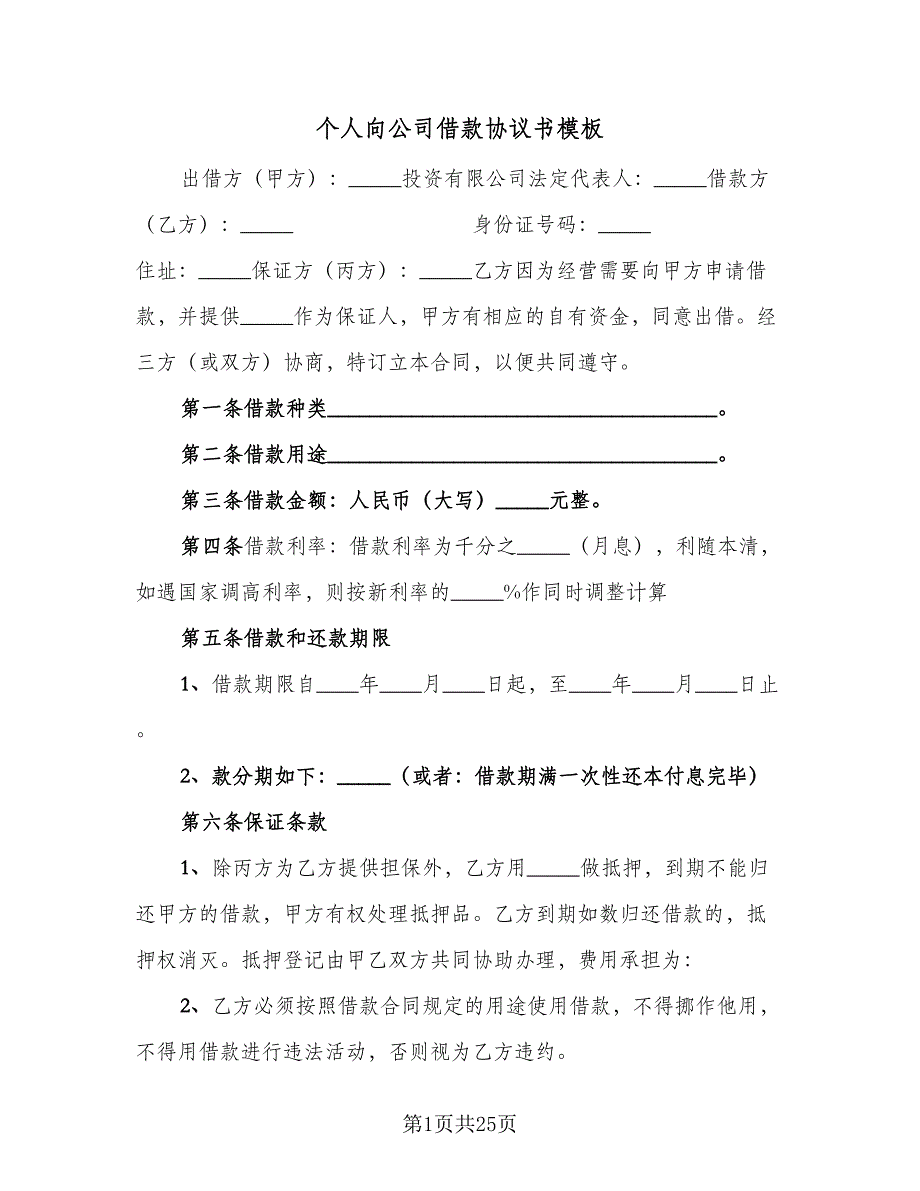 个人向公司借款协议书模板
出借方（甲方）：_____投资有限公司法定代表人：_____借款方
（乙方）：_____ 身份证号码：_____
住址：_____保证方（丙方）：_____乙方因为经营需要向甲方申请借
款，并提供_____作为保证人，甲方有相应的自有资金，同意出借。经
三方（或双方）协商，特订立本合同，以便共同遵守。
第一条借款种类_____________________________________。
第二条借款用途_____________________________________。
第三条借款金额：人民币（大写）_____元整。
第四条借款利率：借款利率为千分之_____（月息），利随本清，
如遇国家调高利率，则按新利率的_____%作同时调整计算
第五条借款和还款期限
1、借款期限自____年____月____日起，至____年____月____日止
。
2、款分期如下：_____（或者：借款期满一次性还本付息完毕）
第六条保证条款
1、除丙方为乙方提供担保外，乙方用_____做抵押，到期不能归
还甲方的借款，甲方有权处理抵押品。乙方到期如数归还借款的，抵
押权消灭。抵押登记由甲乙双方共同协助办理，费用承担为：
2、乙方必须按照借款合同规定的用途使用借款，不得挪作他用，
不得用借款进行违法活动，否则视为乙方违约。
第1页共25页